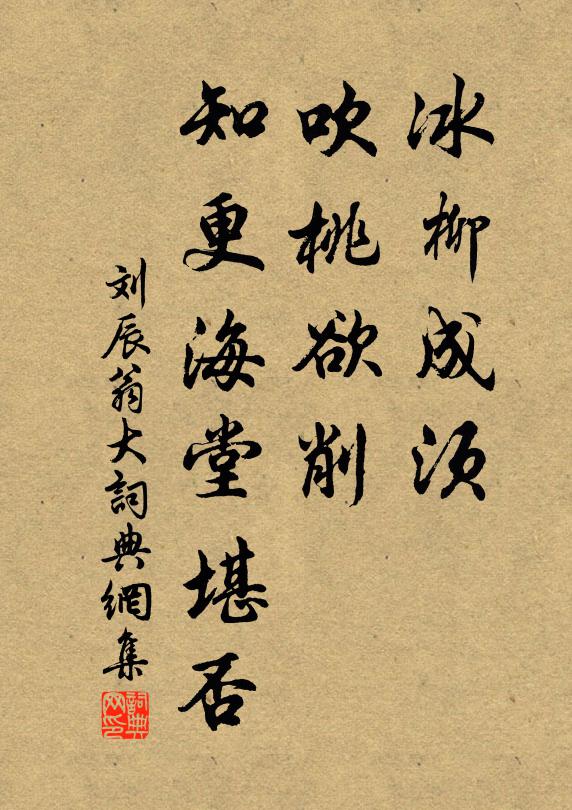 冰柳成须
吹桃欲削
知更海堂堪否
刘辰翁大詞典網集
詞典
网印